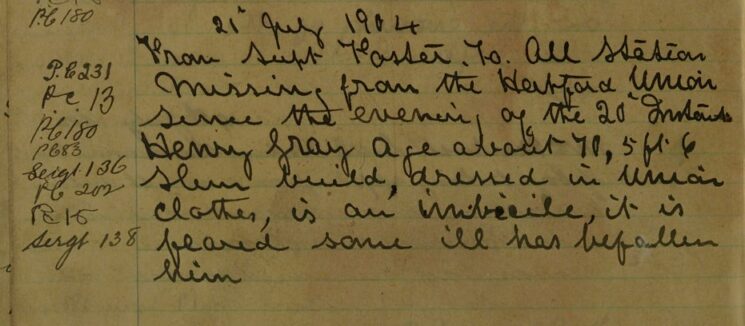 PC 180
21st July 1904
From Supt Foster. To. All Station
P.C 231
Missing from the Hertford Union
P.C. 13
since the evening of the 20th Instant
PC 180
Henry Gray age about 70, 5 ft 6
PC 83
Sergt 136
Slim build, dressed in Union
PC 202
clothes, is an imbicile, it is
Sergt 138
feared some ill has befallen
him